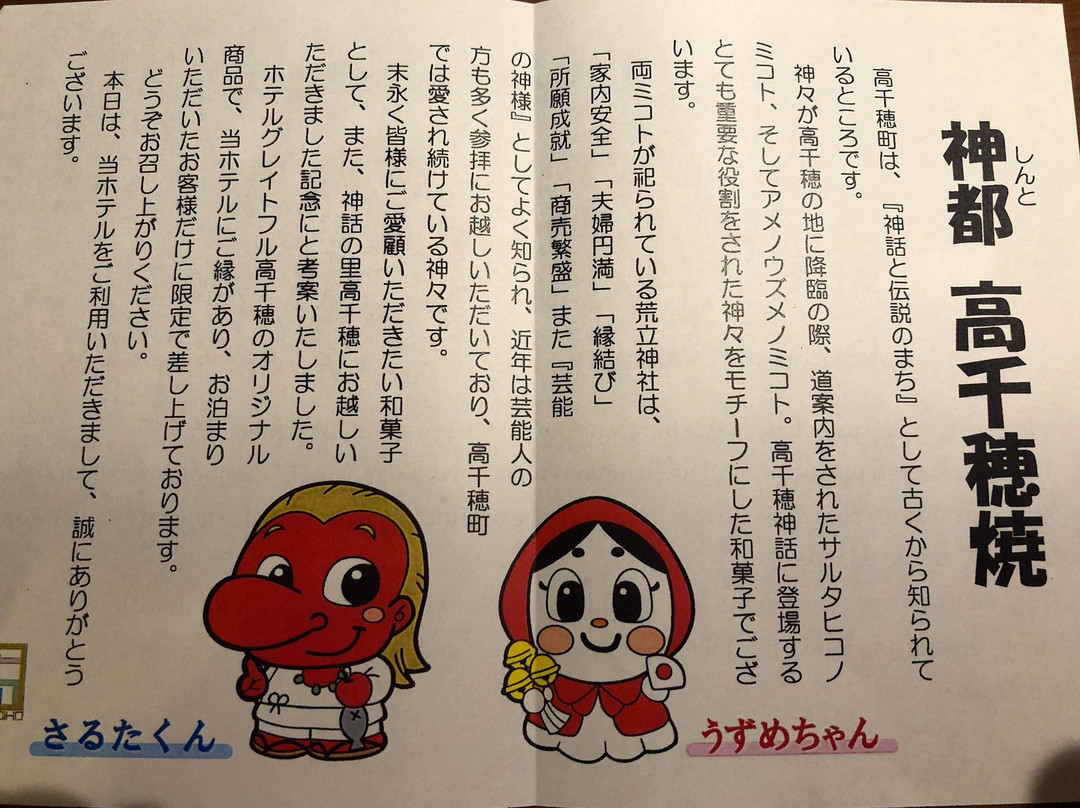 しんと
神都 高千穂焼
高千穂町は、『神話と伝説のまち』として古くから知られて
いるところです。
神々が高千穂の地に降臨の際、道案内をされたサルタヒコノ
ミコト、そしてアメノウズメノミコト。高千穂神話に登場する
とても重要な役割をされた神々をモチーフにした和菓子でござ
います。
両ミコトが祀られている荒立神社は、
「家内安全」「夫婦円満」「縁結び」
「所願成就」「商売繁盛」また『芸能
の神様』としてよく知られ、近年は芸能人の
方も多く参拝にお越しいただいており、高千穂町
では愛され続けている神々です。
末永く皆様にご愛顧いただきたい和菓子
として、また、神話の里高千穂にお越しい
ただきました記念にと考案いたしました。
ホテルグレイトフル高千穂のオリジナル
商品で、当ホテルにご縁があり、お泊まり
いただいたお客様だけに限定で差し上げております。
どうぞお召し上がりください。
本日は、当ホテルをご利用いただきまして、誠にありがとう
ございます。
うずめちゃん
さるたくん